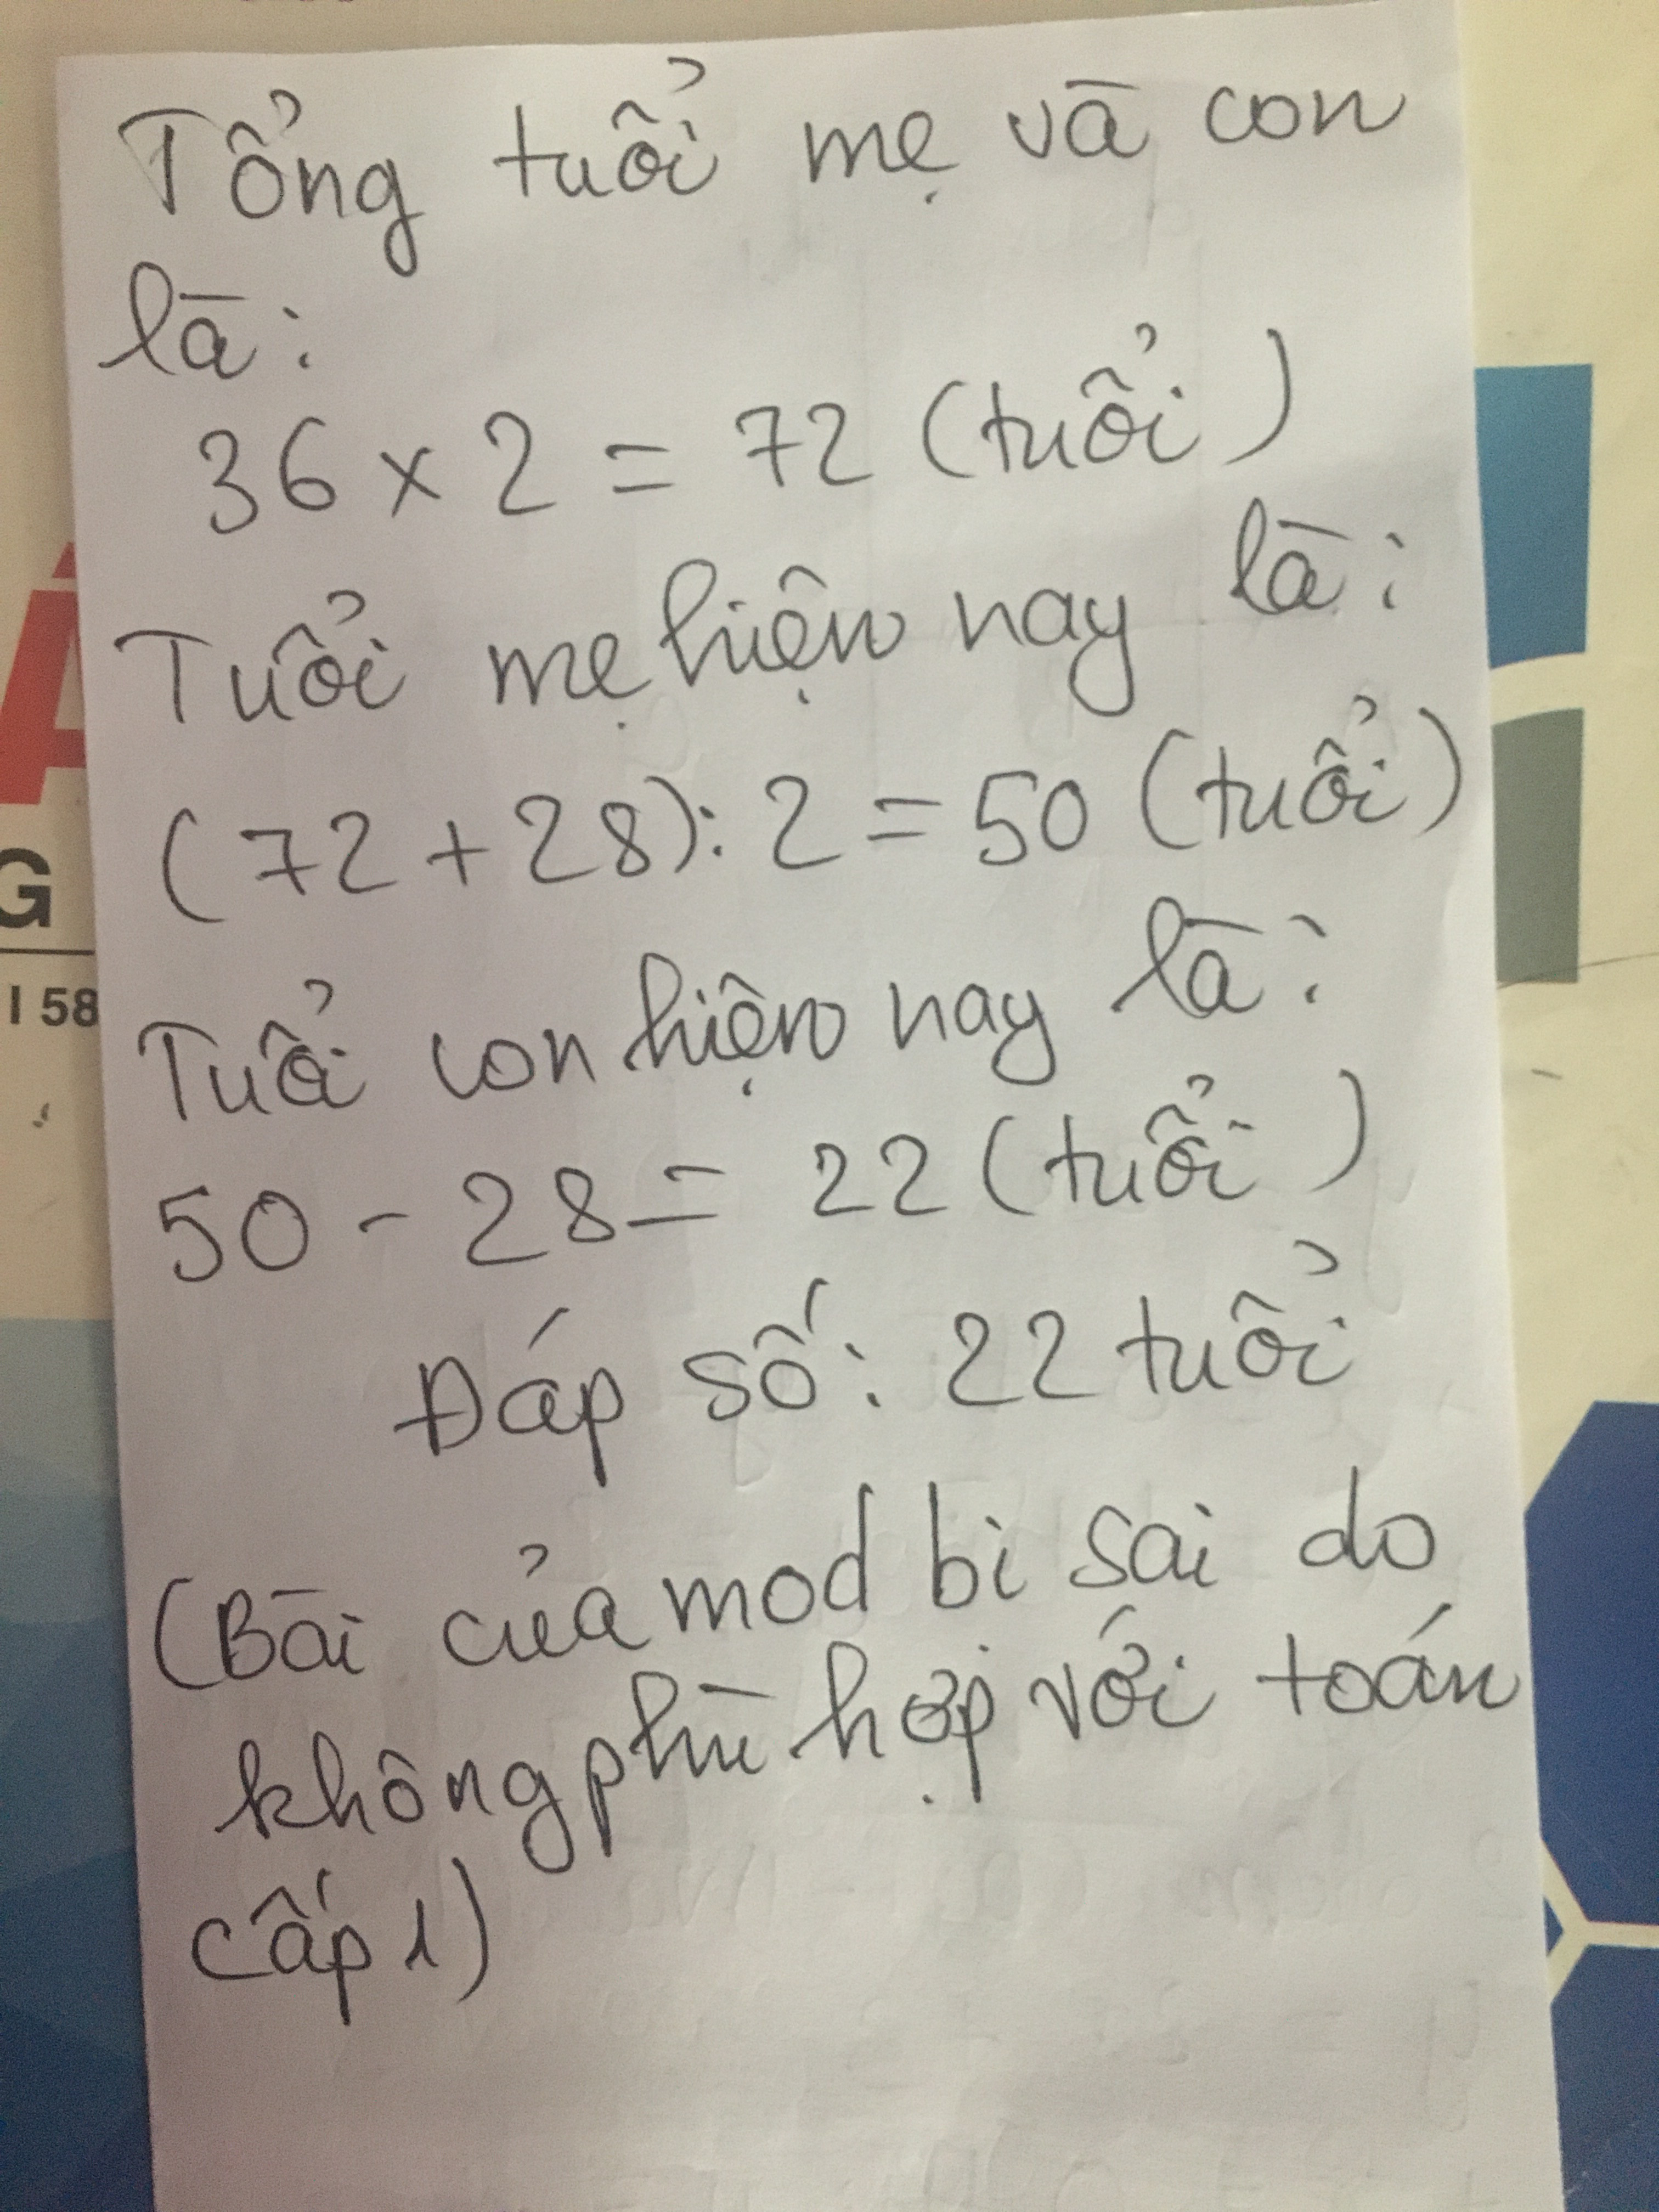 Tổng tuổi mẹ và con
là:
36 x 2 = 72 (tuổi)
Tuổi mẹ hiện nay là:
(72 + 28): 2 = 50 (tuổi)
Tuổi con hiện nay là:
50 - 28 = 22 (tuổi)
Đáp số: 22 tuổi
(Bài của mod bi sai do
không phù hợp với toán
cấp 1)
G
I 58